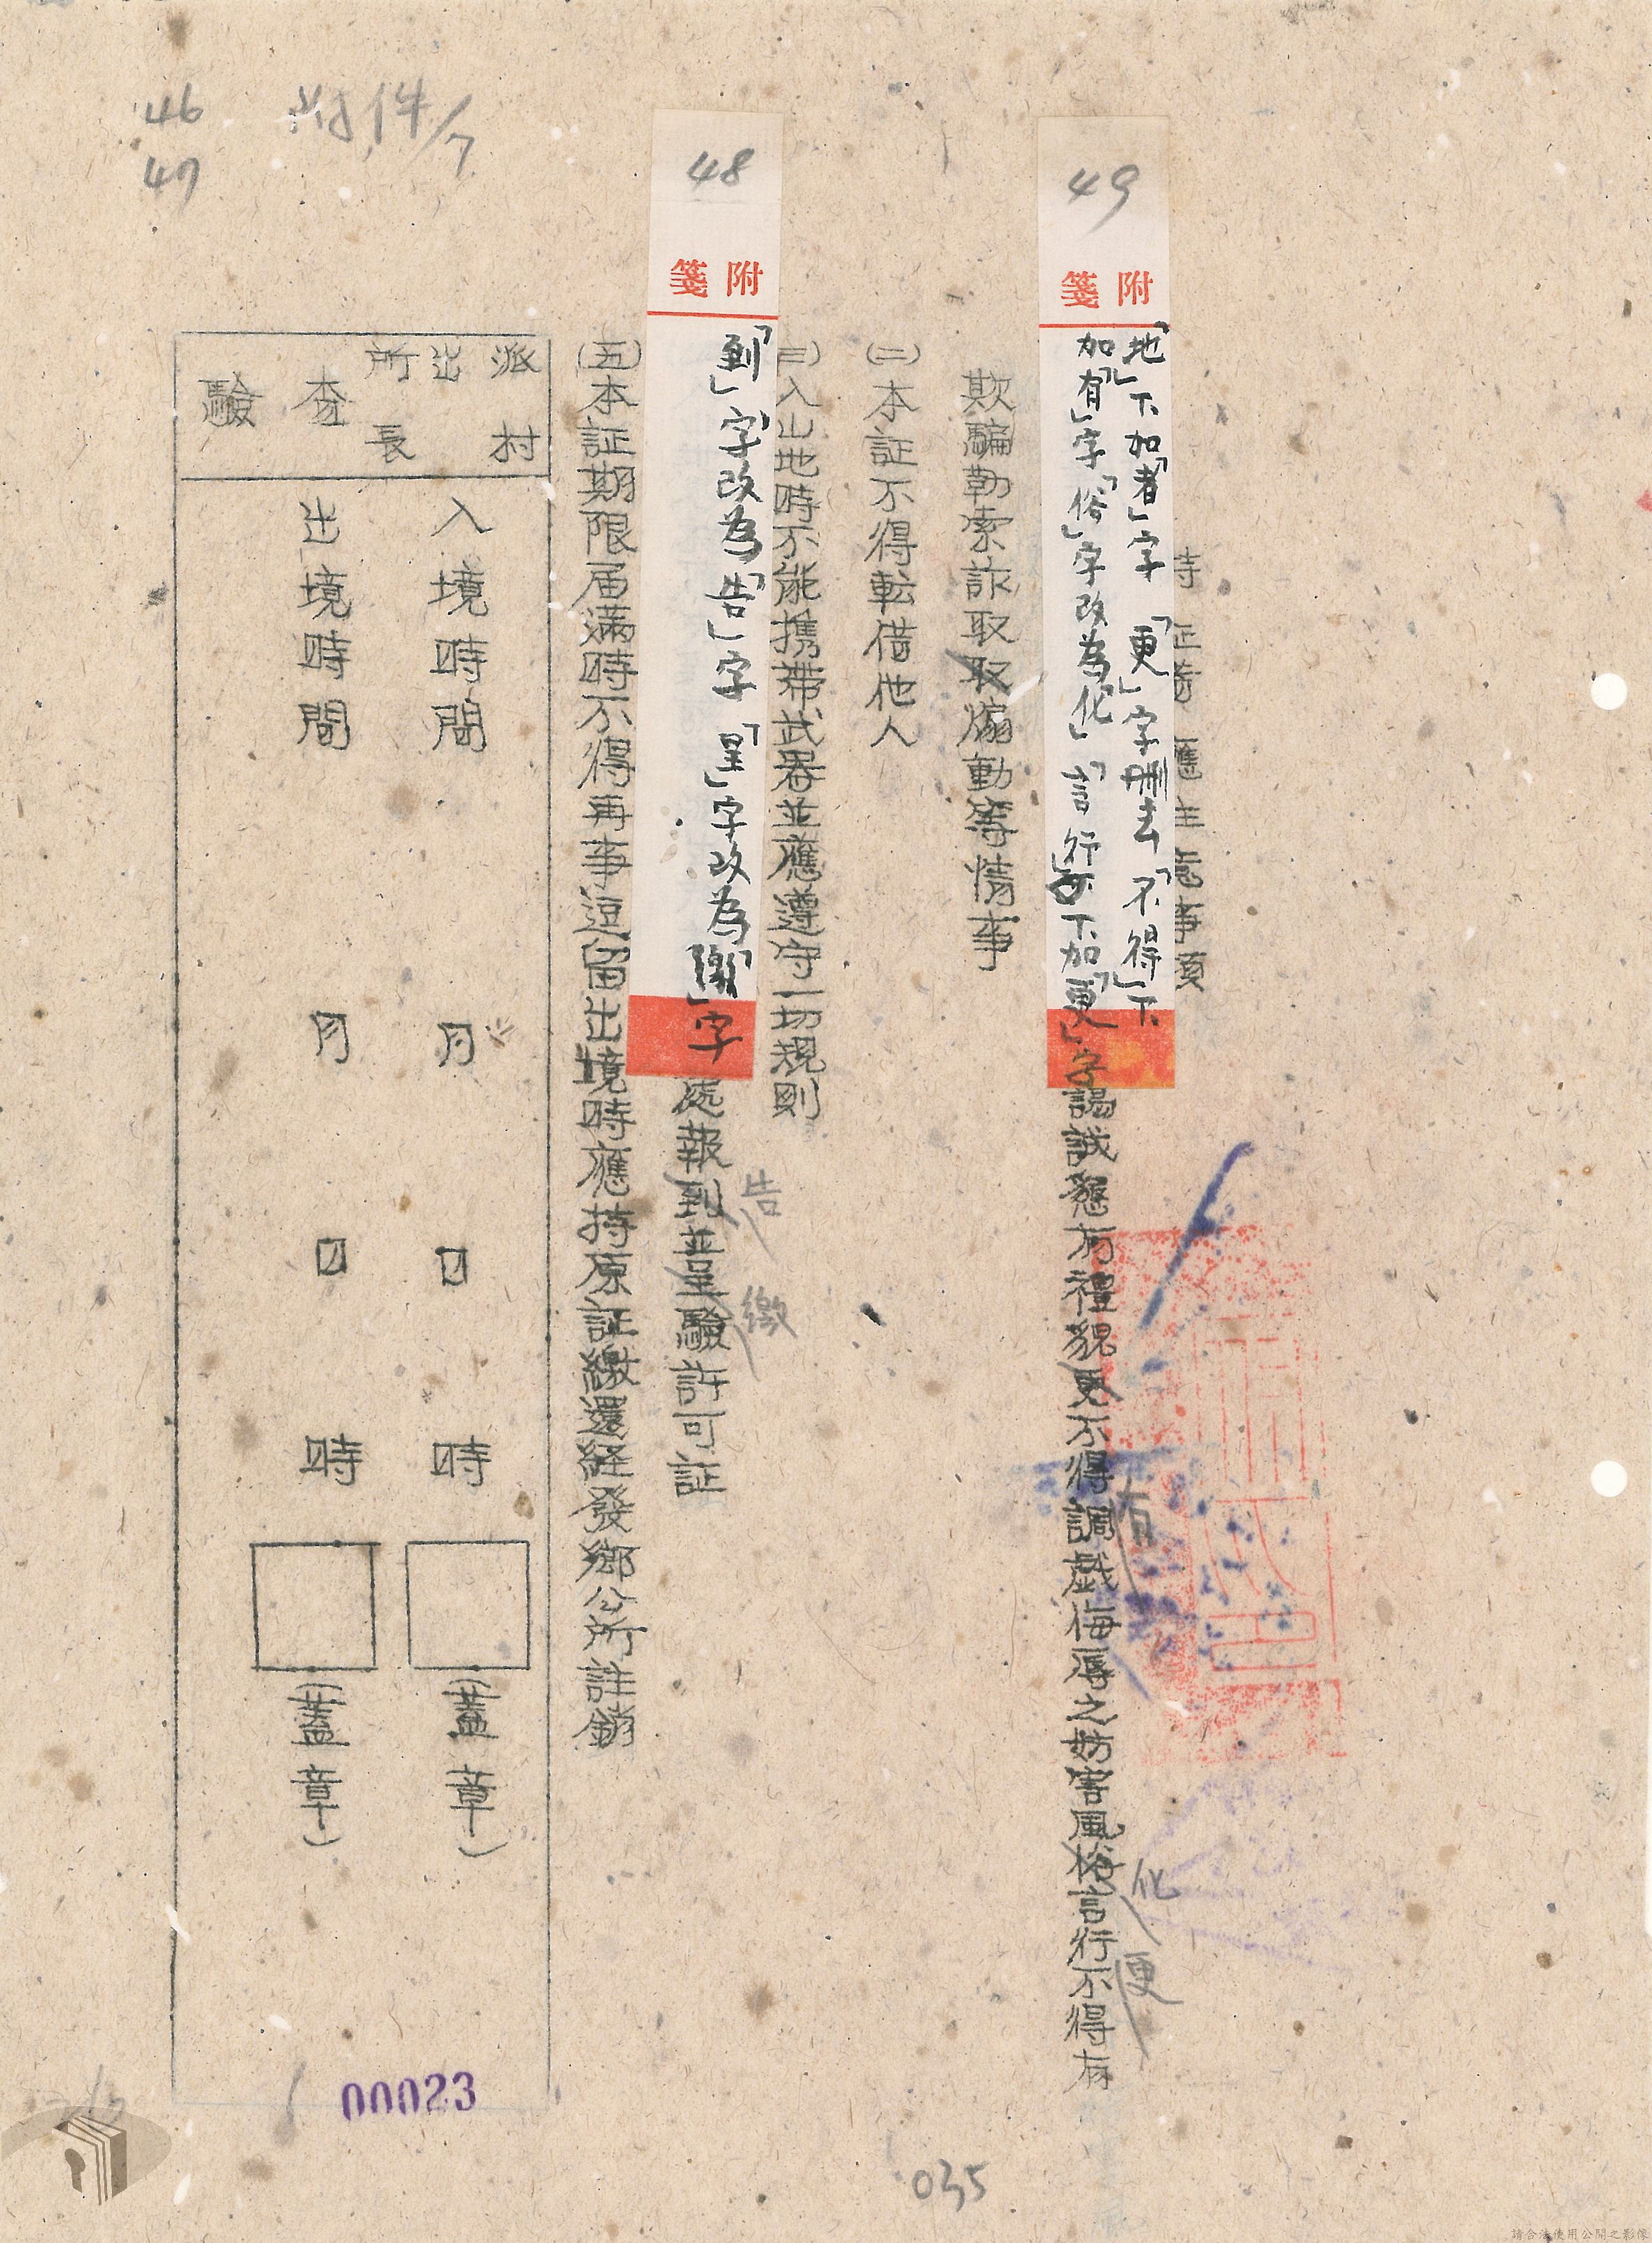 附件/7
46
47
49
附箋
「地」下加「者」字「更」字刪去「不得」下
加「有」字「俗」字改為「化」「言行不」下加「更」字
持証者應注意事項
謁誠懇有禮貌更不得調戲侮辱之妨害風俗言行不得有
有
化
更
欺騙勒索詐取取煽動等情事
(二)本証不得転借他人
(三)入山地時不能携帶武器並應遵守一切規則
48
附箋
「到」字改為「告」字「呈」字改為「繳」字
處報到並呈驗許可証
告
繳
(五)本証期限届滿時不得再事逗留出境時應持原証繳還経發鄉公所註銷
派出所
村長
查驗
入境時間 月 日 時 (蓋章)
出境時間 月 日 時 (蓋章)
00023
035
請合法使用公開之影像